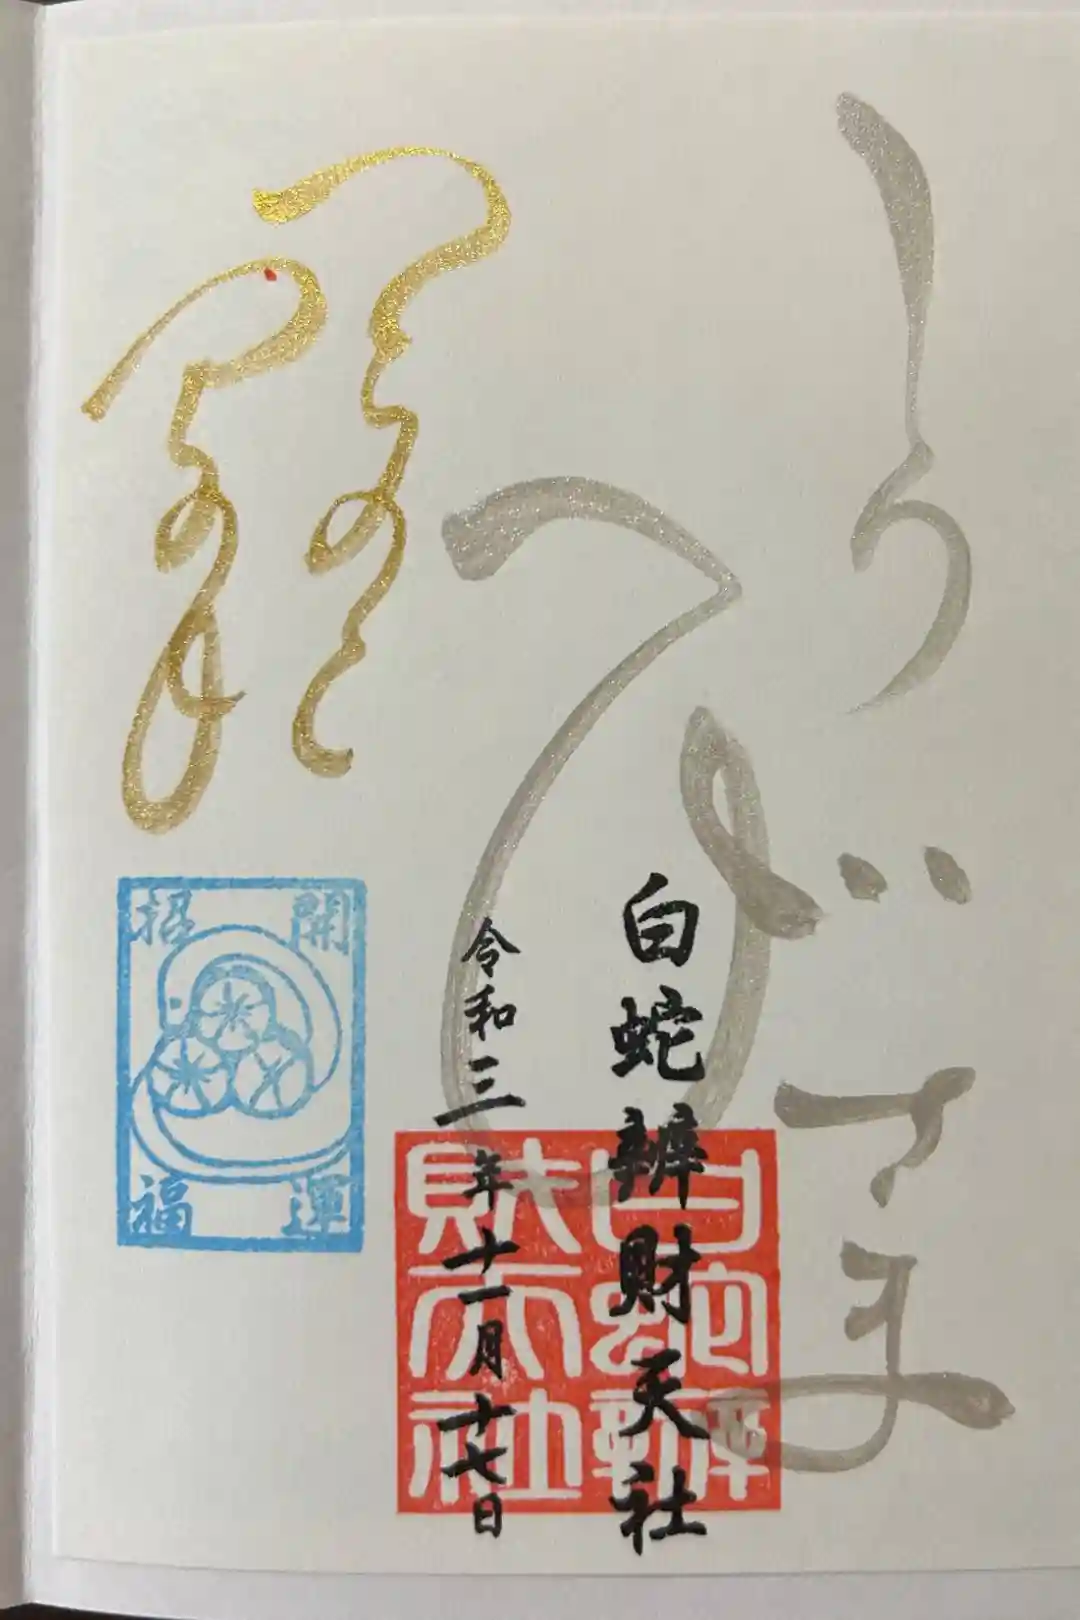 しろへびさま
白蛇辨財天社
令和三年十一月十七日
つちのと
開運
招福
白蛇辨
財天社